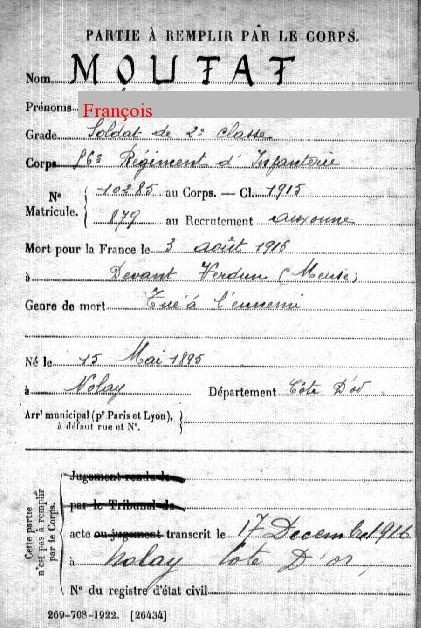 PARTIE À REMPLIR PAR LE CORPS.
Nom MOUTAT
Prénoms François
Grade Soldat de 2e classe
Corps 86e Régiment d'Infanterie
N° Matricule. { 10285 au Corps. — Cl. 1915
879 au Recrutement auxonne
Mort pour la France le 3 août 1916
à Devant Verdun (Meuse)
Genre de mort Tué à l'ennemi
Né le 15 Mai 1895
à Nolay Département Côte D'or
Arrt municipal (pr Paris et Lyon), }
à défaut rue et N°.
Cette partie n'est pas à remplir par le Corps.
Jugement rendu le
par le Tribunal de
acte ou jugement transcrit le 17 Decembre 1916
à Nolay Cote D'or,
N° du registre d'état civil
269-708-1922. [26434]